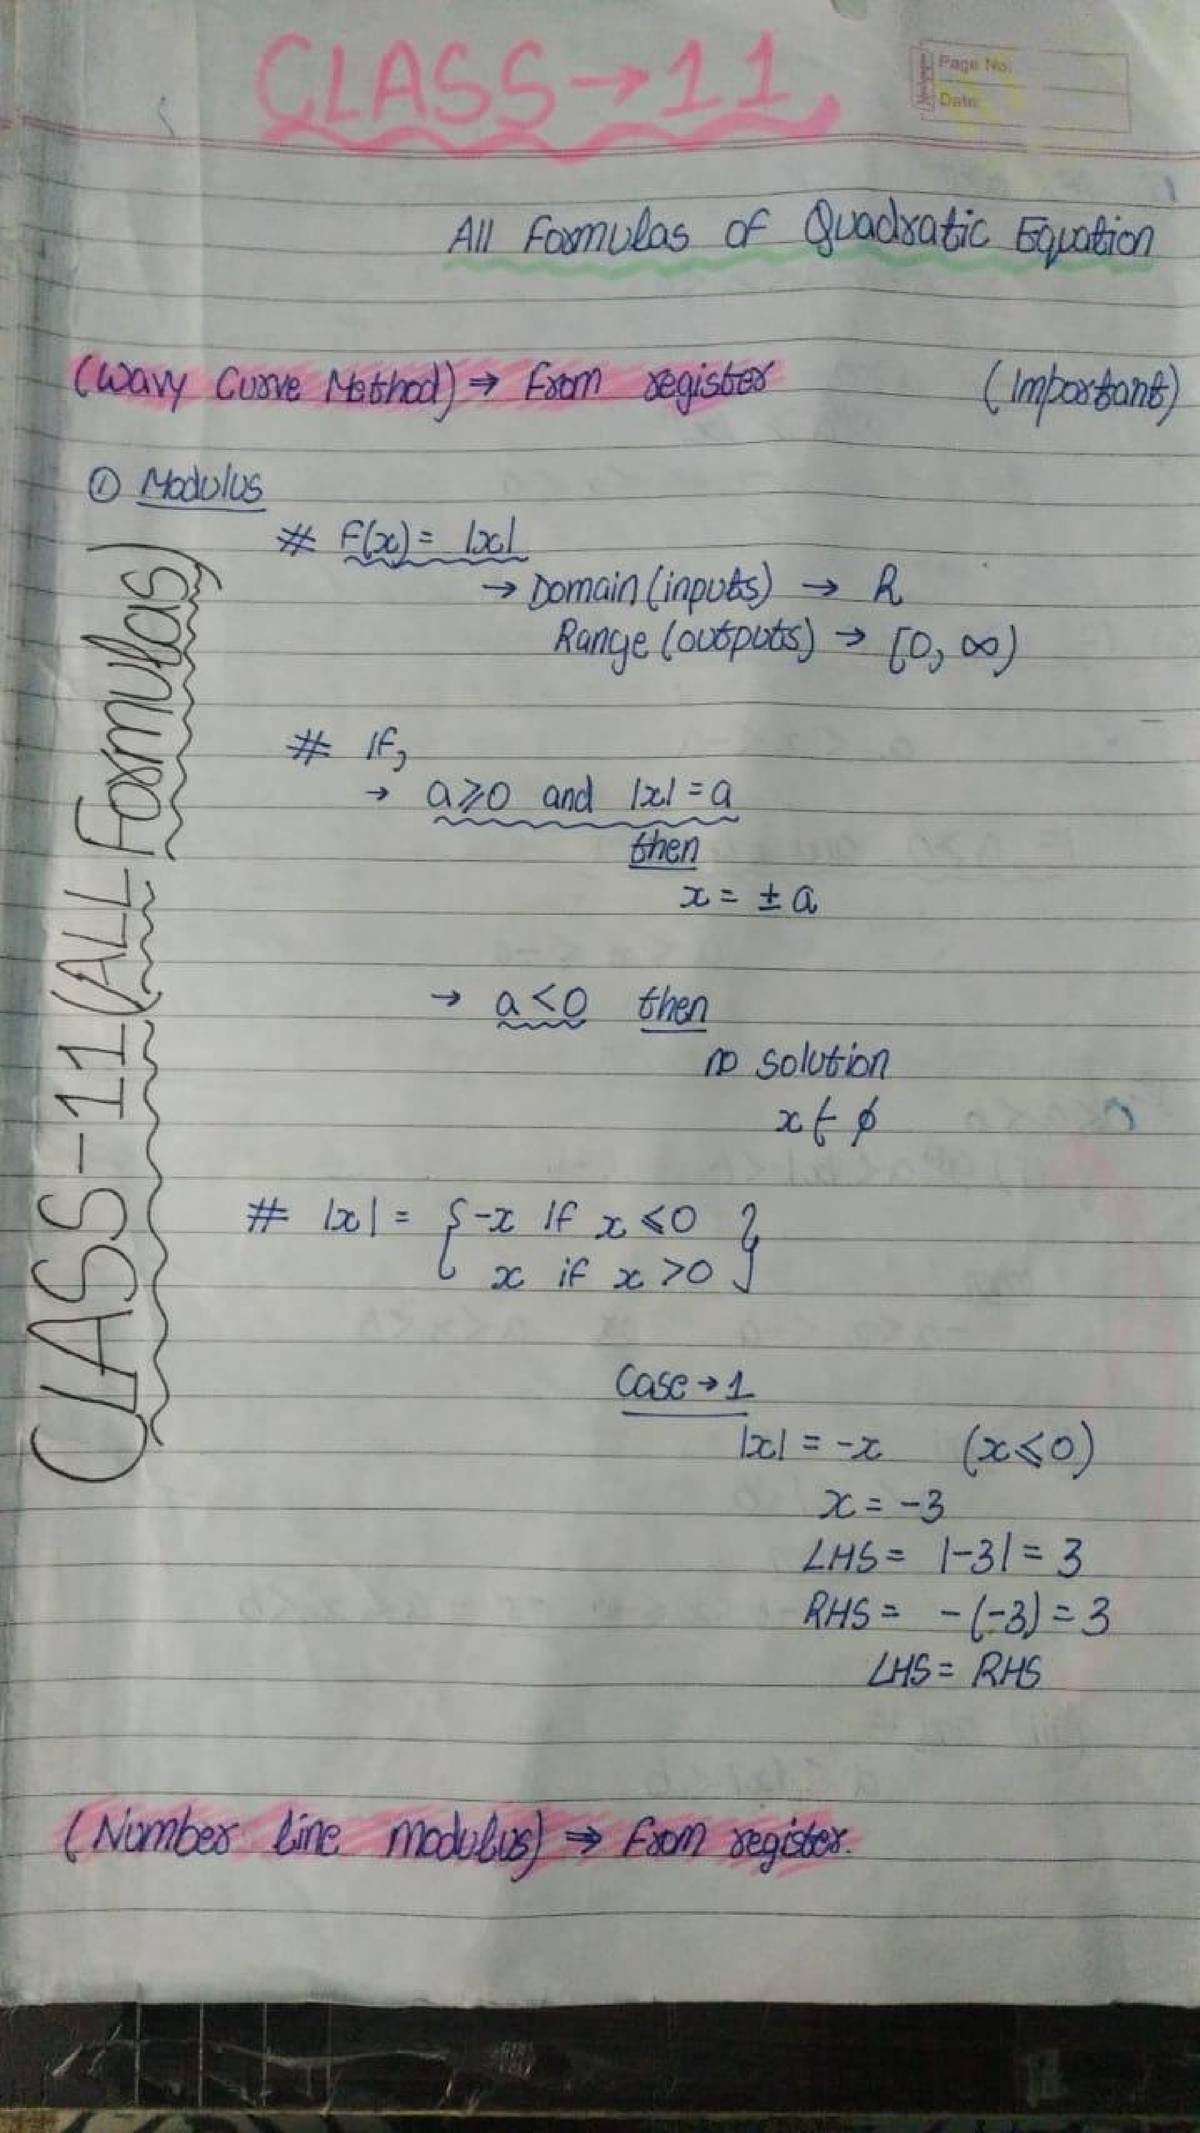 CLASS→11
Page No:
Date:
All Formulas of Quadratic Equation
(Wavy Curve Method) ⇒ From register (Important)
① Modulus
# F(x) = |x|
→ Domain (inputs) → R
Range (outputs) → [0, ∞)
# If,
→ a⩾0 and |x| = a
then
x = ± a
→ a<0 then
no solution
x ∈ ϕ
# |x| = { -x If x ⩽ 0 }
x if x >0
Case → 1
|x| = -x (x⩽0)
x = -3
LHS = |-3| = 3
RHS = -(-3) = 3
LHS = RHS
(Number line modulus) ⇒ From register.
CLASS-11 (ALL Formulas)